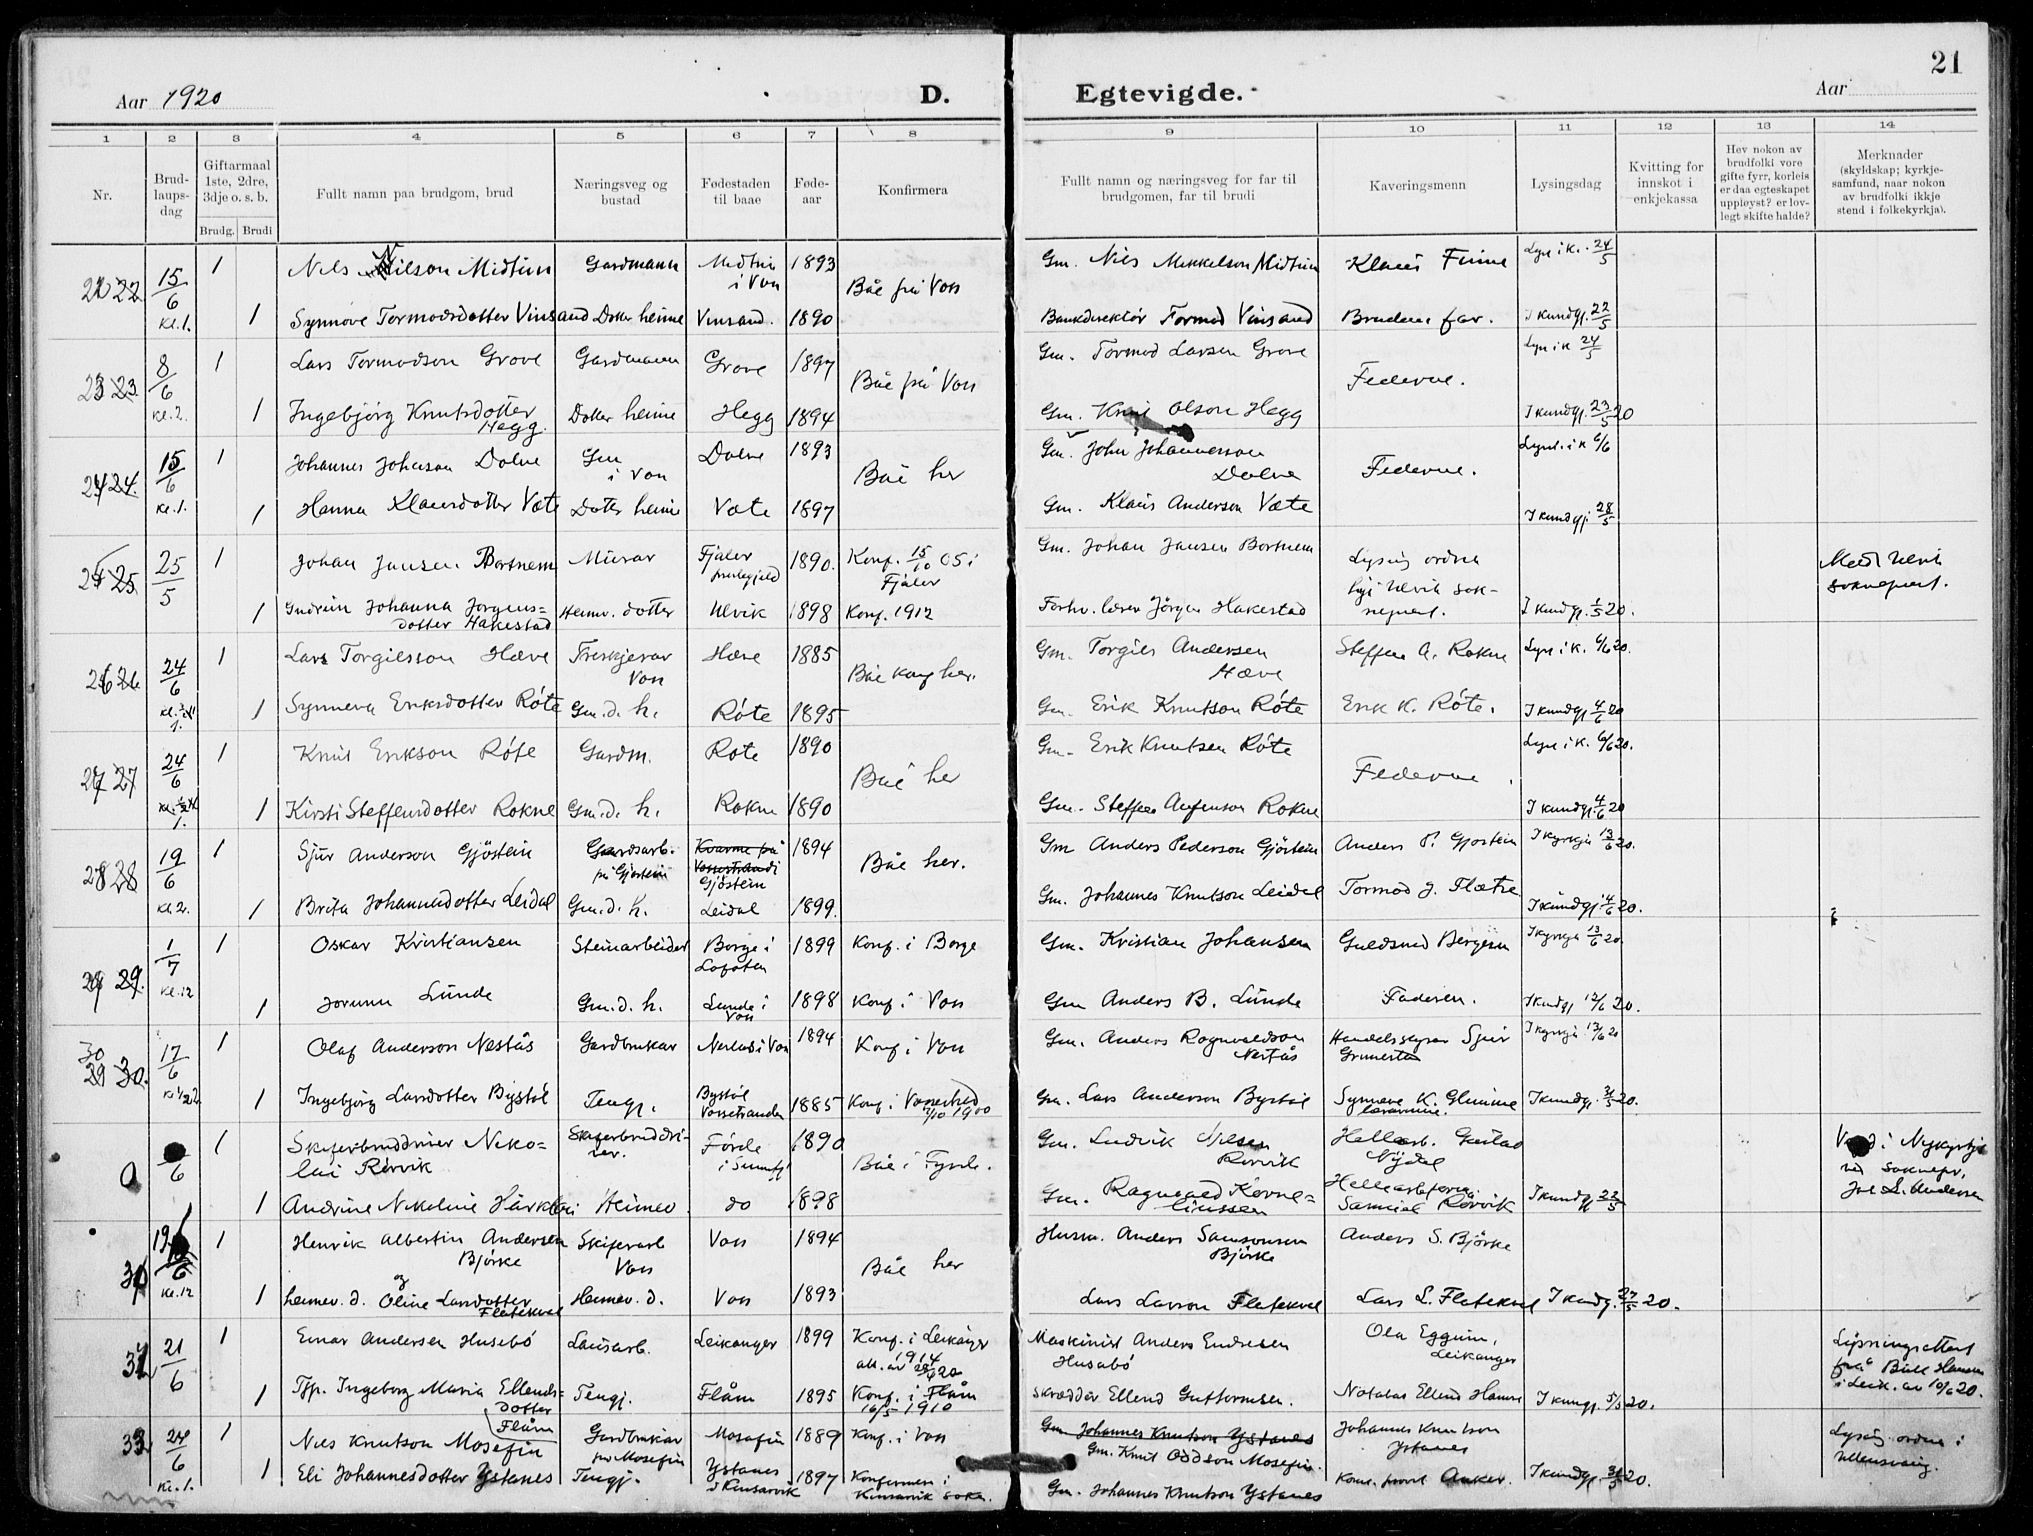 Aar 1920
D.
Egtevigde.
Aar
21
1 2 3 4 5 6 7 8 9 10 11 12 13 14
Nr.
Brud-
laups-
dag
Giftarmaal
1ste, 2dre,
3dje o. s. b.
Brudg. Brudi
Fullt namn paa brudgom, brud
Næringsveg og
bustad
Fødestaden
til baae
Føde-
aar
Konfirmera
Fullt namn og næringsveg for far til
brudgomen, far til brudi
Kaveringsmenn
Lysingsdag
Kvitting for
innskot i
enkjekassa
Hev nokon av
brudfolki vore
gifte fyrr, korleis
er daa egteskapet
uppløyst? er lov-
legt skifte halde?
Merknader
(skyldskap; kyrkje-
samfund, naar nokon
av brudfolki ikkje
stend i folkekyrkja).
22 15/6 1 Nils Nilson Midtun Gardmann Midtun i Voss 1893 Gm. Nils Mikkelson Midtun Klaus Finne Lyse i k. 24/5
Båe frå Voss
kl. 1. 1 Synnøve Tormodsdotter Vinsand Dotter heime Vinsand. 1890 Bankdirektør Tormod Vinsand Brudens far. I kundgj. 22/5
23 8/6 1 Lars Tormodson Grove Gardmann Grove 1897 Gm. Tormod Larsen Grove Lyse i k 24/5
Båe frå Voss Federne.
kl. 2. 1 Ingebjörg Knutsdotter Hegg. Dotter heime Hegg 1894 Gm. Knut Olson Hegg I kundgj. 23/5 20
24. 15/6 1 Johannes Johnson Dolve Gm i Voss Dolve 1893 Gm. John Johannesson Dolve Lyst. i k 6/6
Båe her Federne.
kl. 1. 1 Hanna Klausdotter Væte Dotter heime Væte 1897 Gm. Klaus Anderson Væte I kundgj. 28/5
25 25/5 1 Johan Jansen Borsnem Murar Fjaler prestegjeld 1890. Konf. 15/10 05 i Fjaler Gm. Johan Jansen Borsnem Lysing ordna hjå Ulvik sok- neprest. Meld Ulvik sokneprest.
1 Gudrun Johanna Jørgens= dotter Hakestad Heimv. dotter Ulvik 1898 Konf. 1912 Forhv. lærer Jörgen Hakestad I kundgj. 1/5 20.
26 24/6 1 Lars Torgilsson Hæve Treskjerar Voss Hæve 1885 Gm. Torgils Andersen Hæve Steffen A. Rokne Lyse i k. 6/6 20.
Båe konf her.
1 Synneva Eriksdotter Röte Gm. d. h. Röte 1895 Gm. Erik Knutson Röte Erik K. Röte. I kundgj 4/6 20
27 24/6 1 Knut Erikson Röte Gardm. Röte 1890 Gm. Erik Knutsen Röte Lyse i k. 6/6 20.
Båe her Federne.
1 Kirsti Steffensdotter Rokne Gm. d. h. Rokne 1890 Gm. Steffen Rokne I kundgj. 4/6 20
28 19/6 1 Sjur Anderson Gjöstein Gardsarb. på Gjöstein Kvarme på Vossestrandi Gjöstein 1894 Gm Anders Pederson Gjöstein Anders P. Gjostein I kyrkja 13/6 20.
Båe her.
kl. 2. 1 Brita Johannesdotter Leidal Gm. d. h. Leidal 1899. Gm. Johannes Knutson Leidal Tormod J. Flætre I kundgj 14/6 20.
29. 1/7 1 Oskar Kristiansen Steinarbeider Borge i Lofoten 1899 Konf. i Borge Gm. Kristian Johansen Guldsmed Bergesen I kyrkja 13/6 20.
kl. 12 1 Jorunn Lunde Gm. d. h. Lunde i Voss 1898 Konf. i Voss Gm Anders B. Lunde Faderen. I kundgj 12/6 20.
30. 17/6 1 Olaf Anderson Nestås Gardbrukar Nestås i Voss 1894 Konf i Voss Gm. Anders Ragnvaldson Nestås Handelsstyrar Sjur I kyrkja 13/6 20
1 Ingebjörg Larsdotter Bystöl Tengj. Bystöl Vossestranden 1885 Konf. i Vossestrand 2/10 1900 Gm. Lars Anderson Bystöl Synnøve K. Glimme lærarinne. I kundgj. 31/5 20.
0 /6 1 Skiferbruddriver Niko= lai Rörvik Skiferbruddri- ver. Förde i Sunnfj. 1890 Gm. Ludvik Nilsen Rorvik Hellearb. Gustav Nydal
Båe i
1 Andrine Nikoline Heimev. do 1898 Gm. Ragnvald Korne= liussen Samuel Rörvik I kundgj 22/5
i Nykyrkja ved sokнepr.
31 12/6 1 Henrik Albertin Andersen Björke Skiferarb Voss Voss 1894 Husm. Anders Samsonsen Björke Anders S. Björke
Båe her
kl. 12 1 heimev. d. og Oline Larsdotter Flatekval Heimev. d. Voss 1893 Lars Larson Flatekval Lars L. Flatekval I kundgj. 27/5 20.
32 21/6 1 Einar Andersen Husebö Lausarb. Leikanger 1899 Konf. i Leikanger 1914 Maskinist Anders Endresen Husabö Ola Eggum, Leikanger Lysningsattest frå
1 Tjp. Ingeborg Maria Ellends= dotter Flåm Tengj. Flåm 1895 Konf. i Flåm 16/5 1910 Skrædder Ellend Guttormsen. Notabas Ellend Hamre I kungj. 5/5 20.
33 24/6 1 Nils Knutson Mosafin Gardbrukar på Mosafin Mosafin 1889 Konf. i Voss Gm Johannes Knutson Ystanes Gm. Knut Oddson Mosefin. Johannes Knutson Ystanes Lysing ordna i Ullensvang.
kl. 1. 1 Eli Johannesdotter Ystanes Tengj. Ystanes i Kinsarvik 1897 Konfirmera i Kinsarvik sokn. Gm. Johannes Knutson Ystanes Anker. I kundgj. 31/5 20.